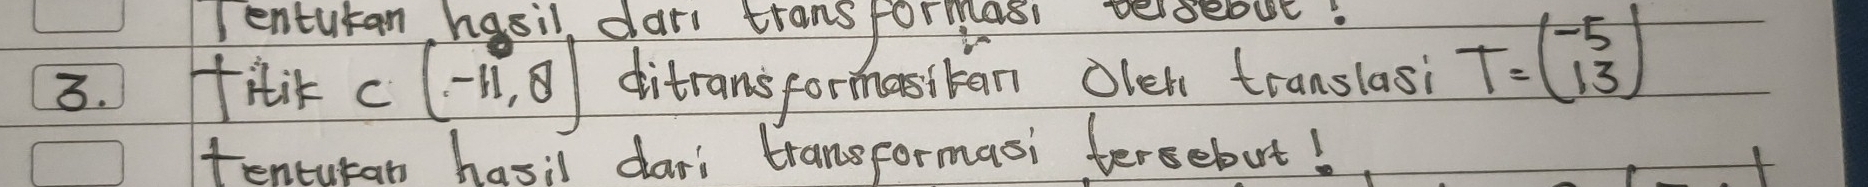 Tentukan hasil dari transformasi tersebut!
3. Titik C (-11, 8) ditransformasikan oleh translasi T = (-5 13)
tentukan hasil dari transformasi tersebut!